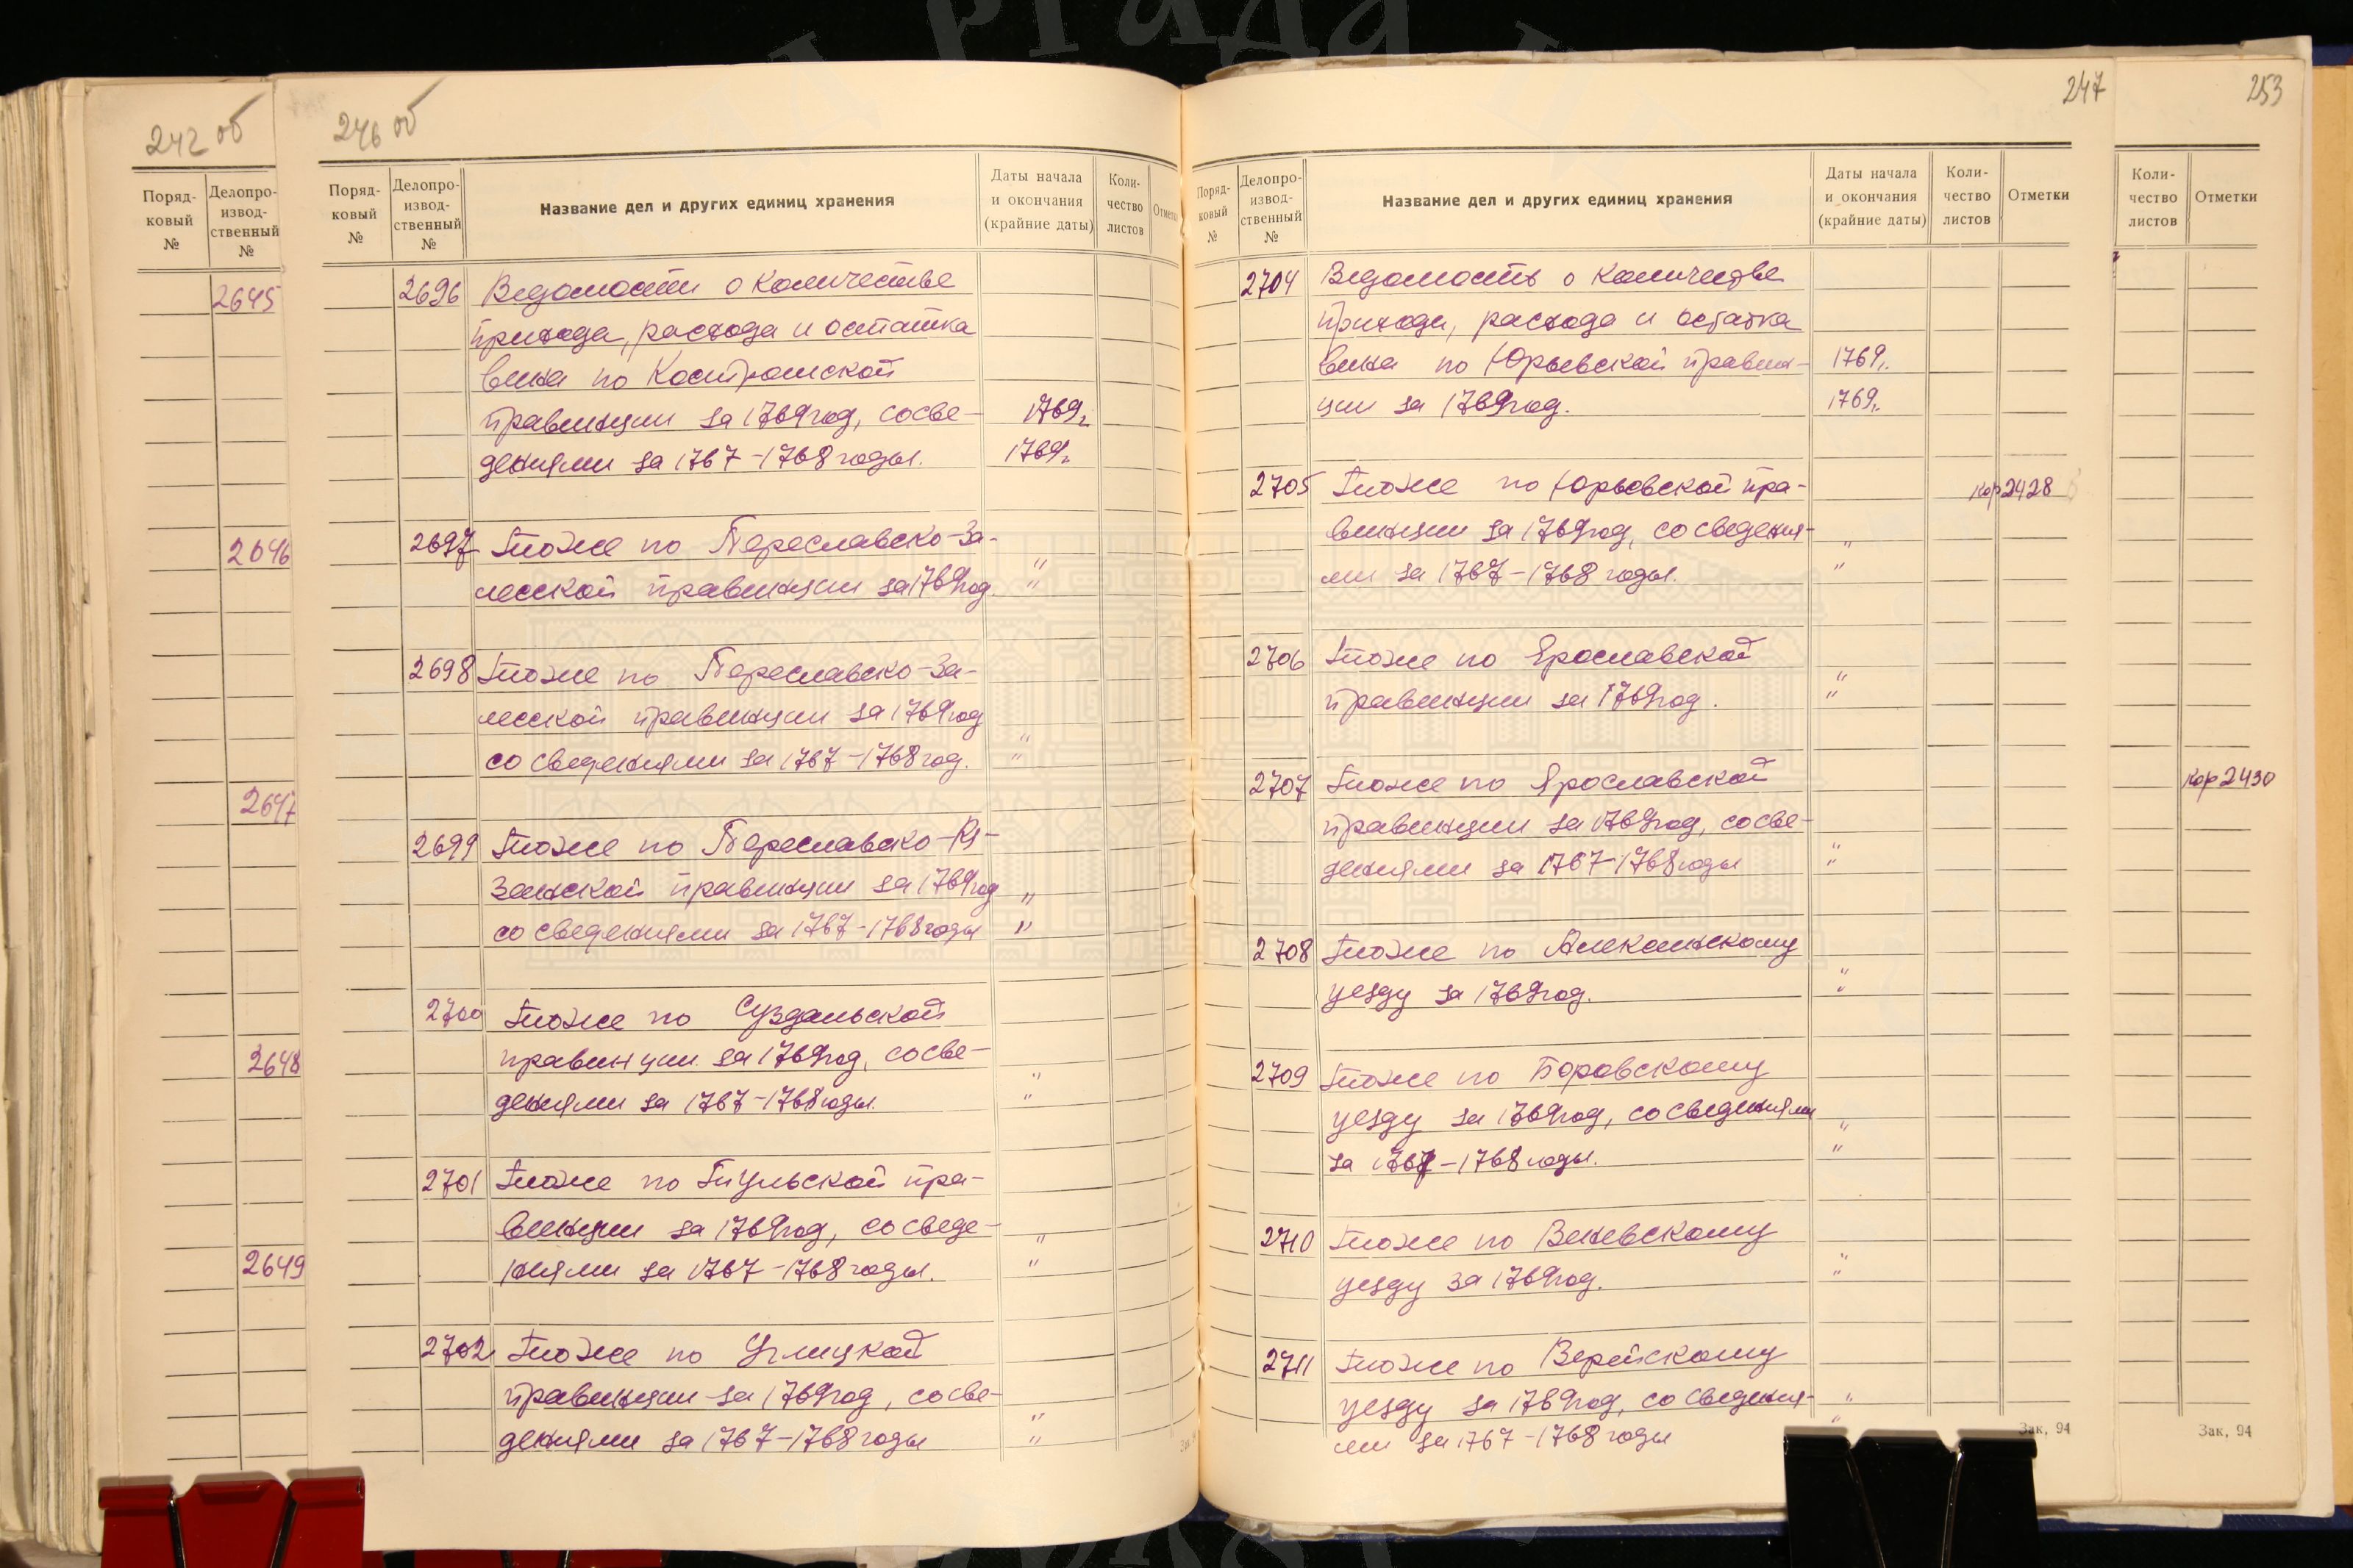 242 об
Поряд-
ковый
№
Делопро-
извод-
ственный
№
2645
2646
2647
2648
2649
246 об
Поряд-
ковый
№
Делопро-
извод-
ственный
№
Название дел и других единиц хранения
Даты начала
и окончания
(крайние даты)
Коли-
чество
листов
2696 Ведомости о количестве
прихода, расхода и остатка
вина по Костромской
правинции за 1769 год, со све- 1769г.
дениями за 1767-1768 годы. 1769г.
2697 То же по Переславско-За-
лесской правинции за 1769 год. " "
2698 То же по Переславско-За-
лесской правинции за 1769 год
со сведениями за 1767-1768 год. " "
2699 То же по Переславско-Ря-
занской правинции за 1769 год "
со сведениями за 1767-1768 годы "
2700 То же по Суздальской
правинции за 1769 год, со све-
дениями за 1767-1768 годы. " "
2701 То же по Тульской пра-
винции за 1769 год, со сведе- "
ниями за 1767-1768 годы. "
2702 То же по Углицкой
правинции за 1769 год, со све-
дениями за 1767-1768 годы " "
247
Поряд-
ковый
№
Делопро-
извод-
ственный
№
Название дел и других единиц хранения
Даты начала
и окончания
(крайние даты)
Коли-
чество
листов
Отметки
2704 Ведомость о количестве
прихода, расхода и остатка
вина по Юрьевской правин- 1769г.
ции за 1769 год. 1769г.
2705 То же по Юрьевской пра- Кор 2428
винции за 1769 год, со сведения- "
ми за 1767-1768 годы. "
2706 То же по Ярославской
правинции за 1769 год. " "
2707 То же по Ярославской
правинции за 1769 год, со све-
дениями за 1767-1768 годы " "
2708 То же по Алексинскому
уезду за 1769 год. " "
2709 То же по Боровскому
уезду за 1769 год, со сведениями "
за 1767-1768 годы. "
2710 То же по Веневскому
уезду за 1769 год. " "
2711 То же по Верейскому
уезду за 1769 год, со сведения- "
ми за 1767-1768 годы "
Зак. 94
253
Коли-
чество
листов
Отметки
Кор 2430
Зак. 94